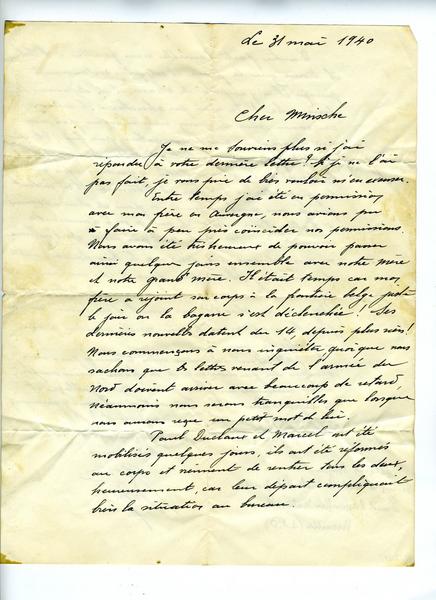 Le 31 mai 1940
Cher Minsche
Je ne me souviens plus si j'ai
répondu à votre dernière lettre! Si je ne l'ai
pas fait, je vous prie de bien vouloir m'en excuser.
Entre temps j'ai été en permission
avec mon frère en Auvergne, nous avions pu
faire à peu près coïncider nos permissions.
Nous avons été très heureux de pouvoir passer
ainsi quelques jours ensemble avec notre mère
et notre grand'mère. Il était temps car mon
frère a rejoint son corps à la frontière belge juste
le jour où la bagarre s'est déclenchée! Ses
dernières nouvelles datent du 14, depuis plus rien!
Nous commençons à nous inquiéter quoique nous
sachons que les lettres venant de l'armée du
Nord doivent arriver avec beaucoup de retard,
néanmoins nous serons tranquilles que lorsque
nous aurons reçu un petit mot de lui.
Paul Duclaux et Marcel ont été
mobilisés quelques jours, ils ont été réformés
au corps et viennent de rentrer tous les deux,
heureusement, car leur départ compliquait
bien la situation au bureau.